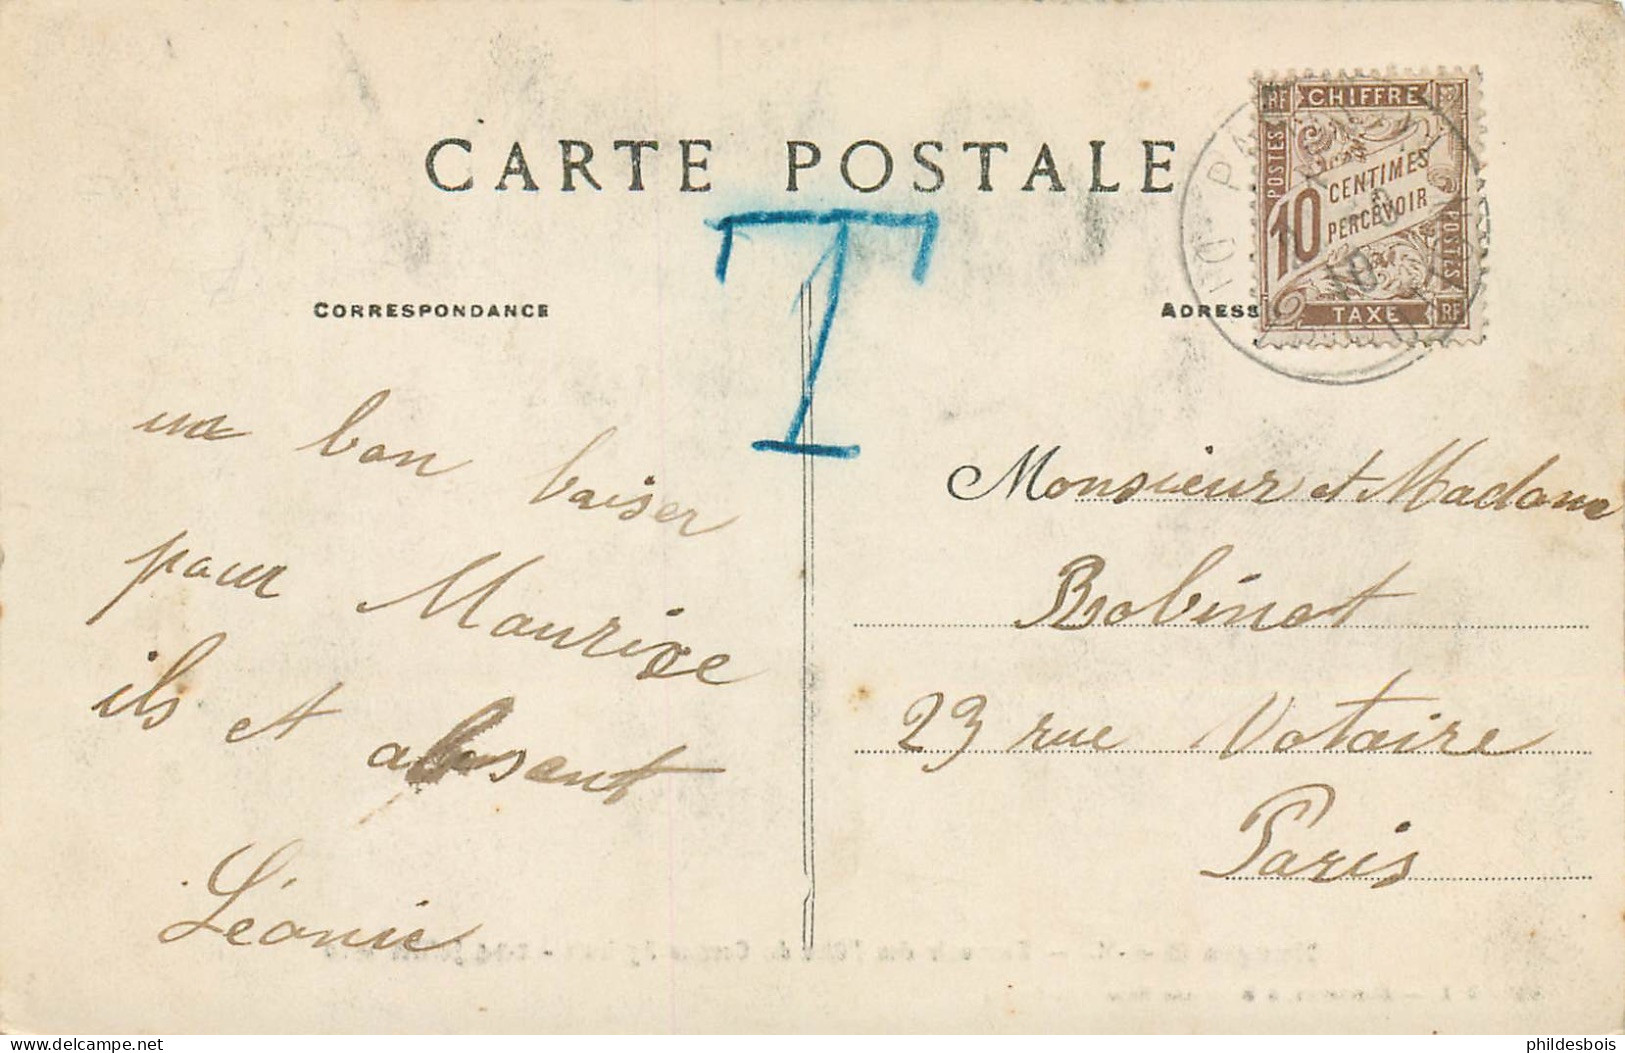 CARTE POSTALE
CORRESPONDANCE
ADRESS
T
RF CHIFFRE
POSTES
10 CENTIMES
PERCEVOIR
POSTES
TAXE RF
10
un bon baiser
pour Maurice
ils et absent
Léonie
Monsieur et Madame
Robinet
23 rue Votaire
Paris
phildesbois